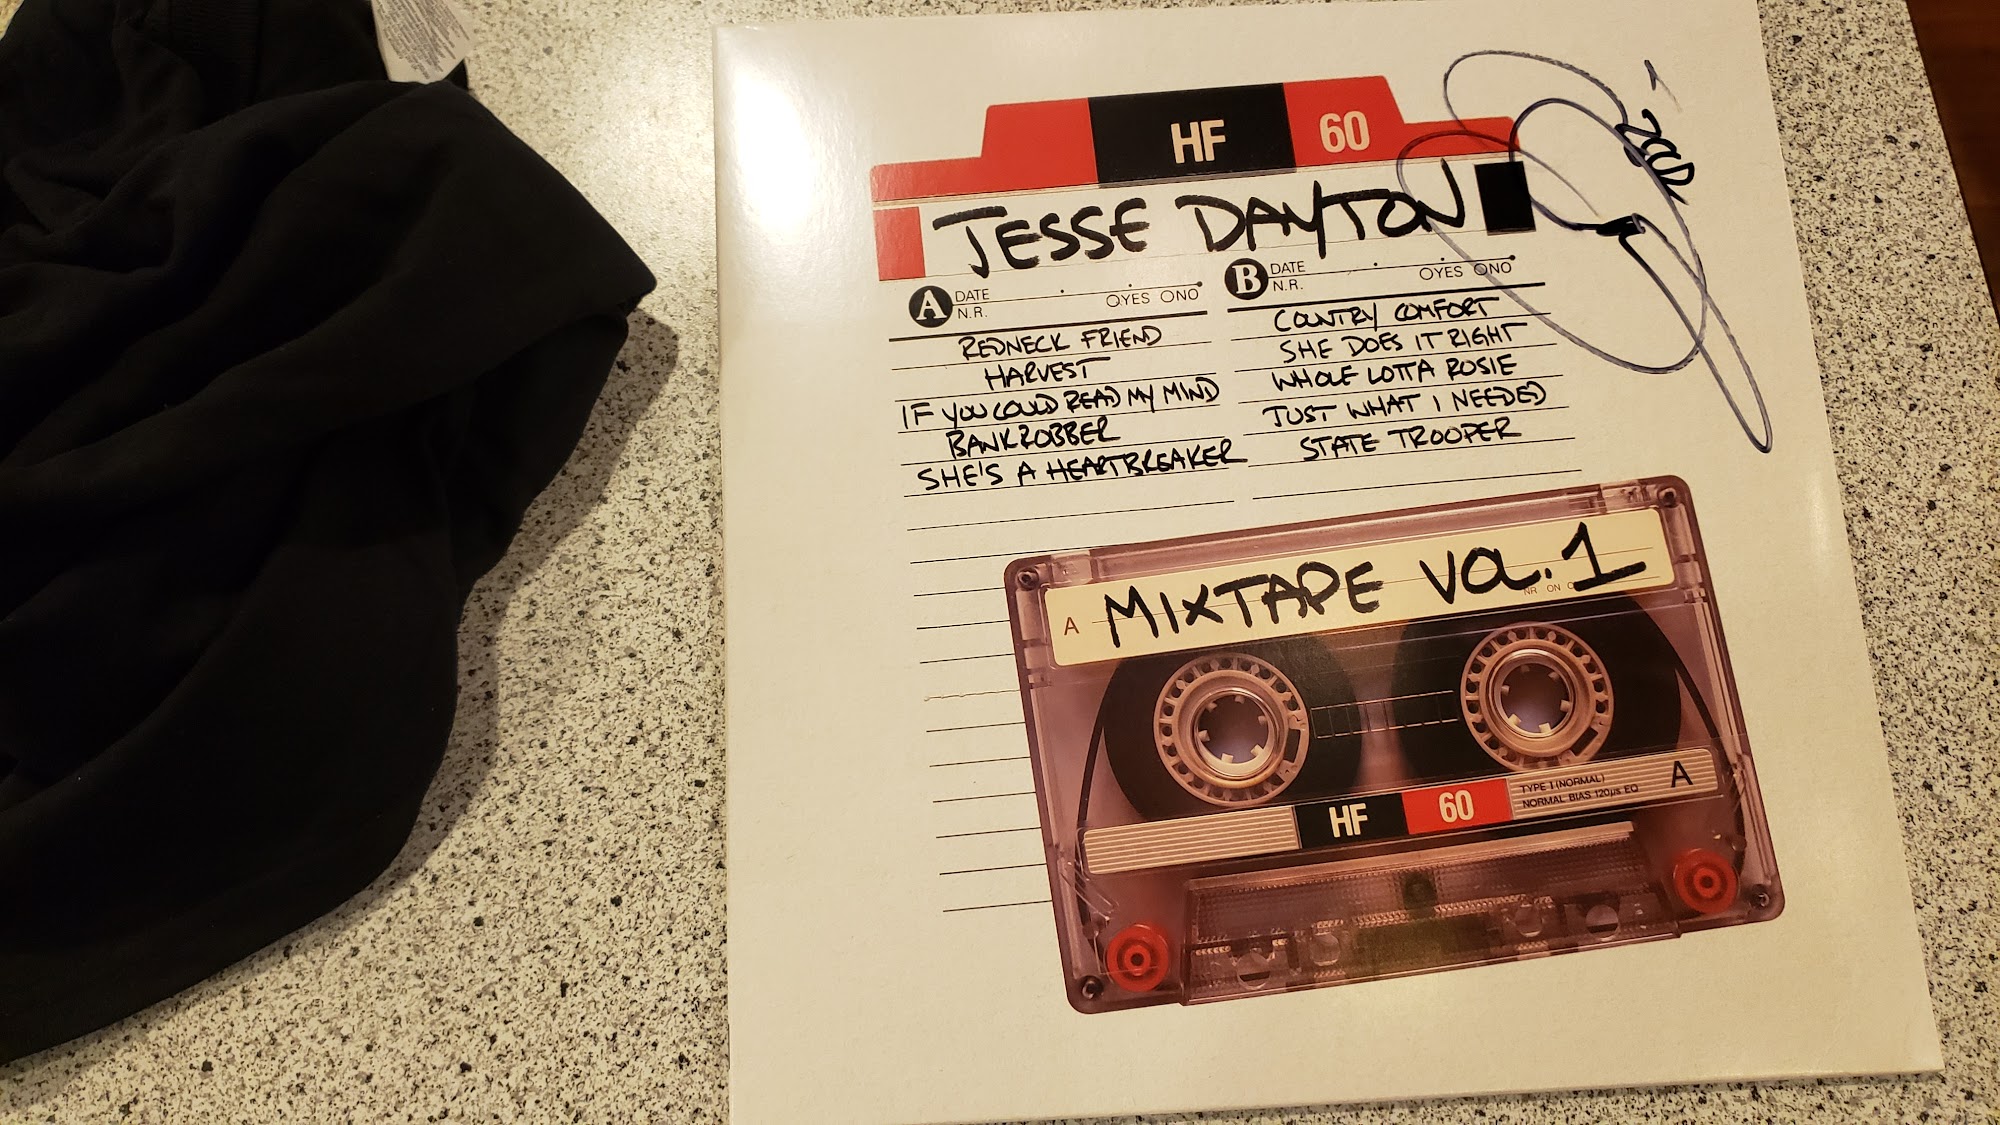 HF 60
JESSE DAYTON
A DATE N.R. OYES ONO
REDNECK FRIEND
HARVEST
IF YOU COULD READ MY MIND
BANKROBBER
SHE'S A HEARTBREAKER
B DATE N.R. OYES ONO
COUNTRY COMFORT
SHE DOES IT RIGHT
WHOLE LOTTA ROSIE
JUST WHAT I NEEDED
STATE TROOPER
A MIXTAPE VOL.1
HF 60
TYPE I (NORMAL)
NORMAL BIAS 120µs EQ
A